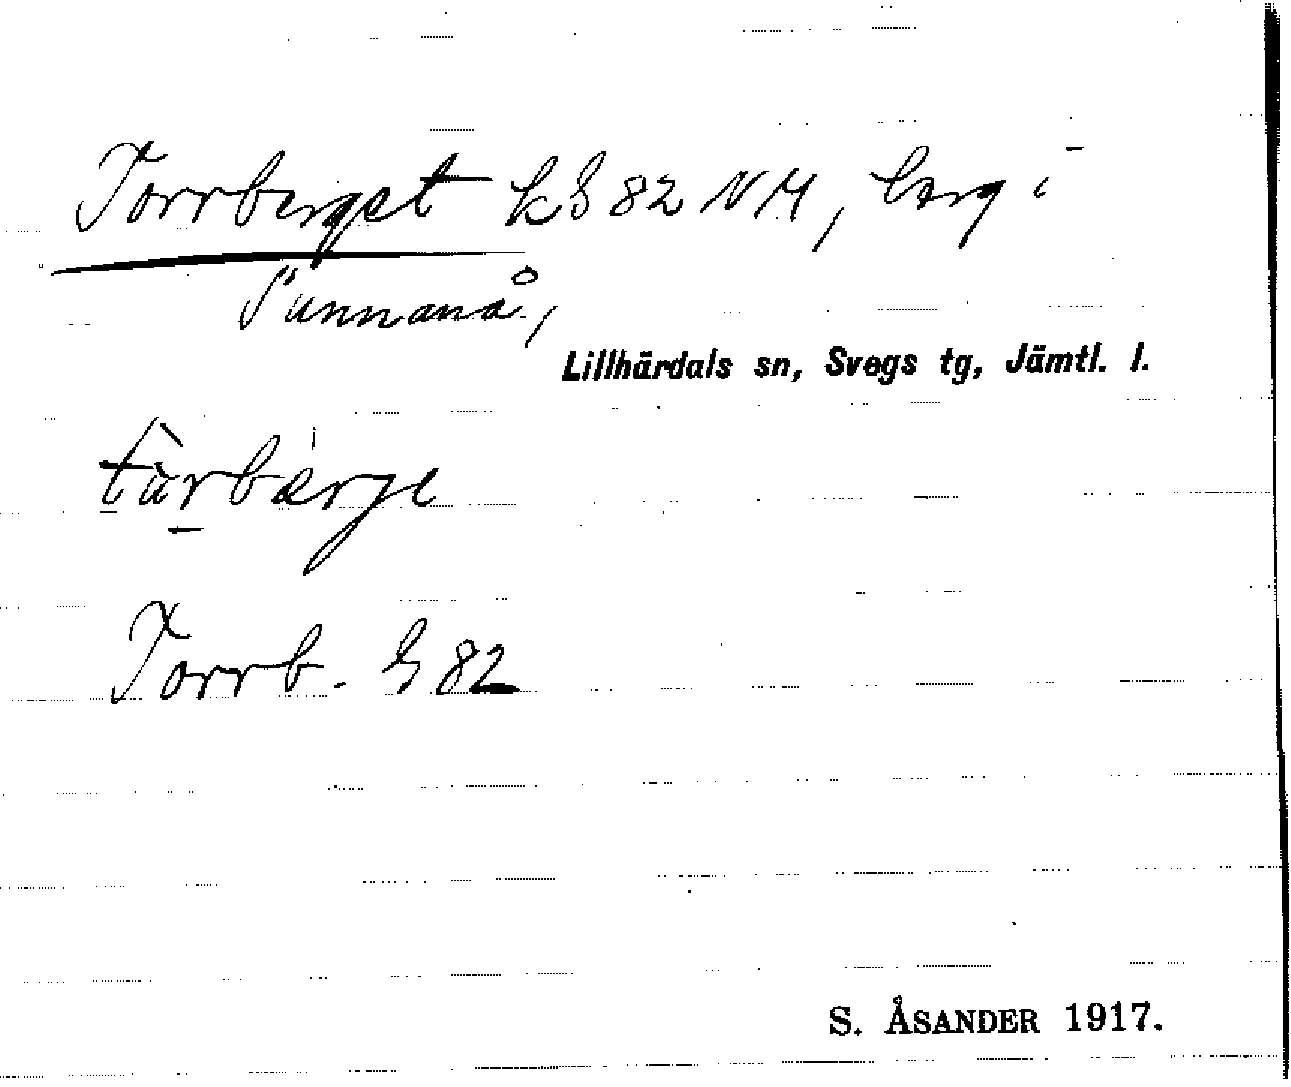 Torrberget kG 82 NM, berg i
Sunnanå,
Lillhärdals sn, Svegs tg, Jämtl. l.
tàrbærje
Torrb. G 82
S. ÅSANDER 1917.